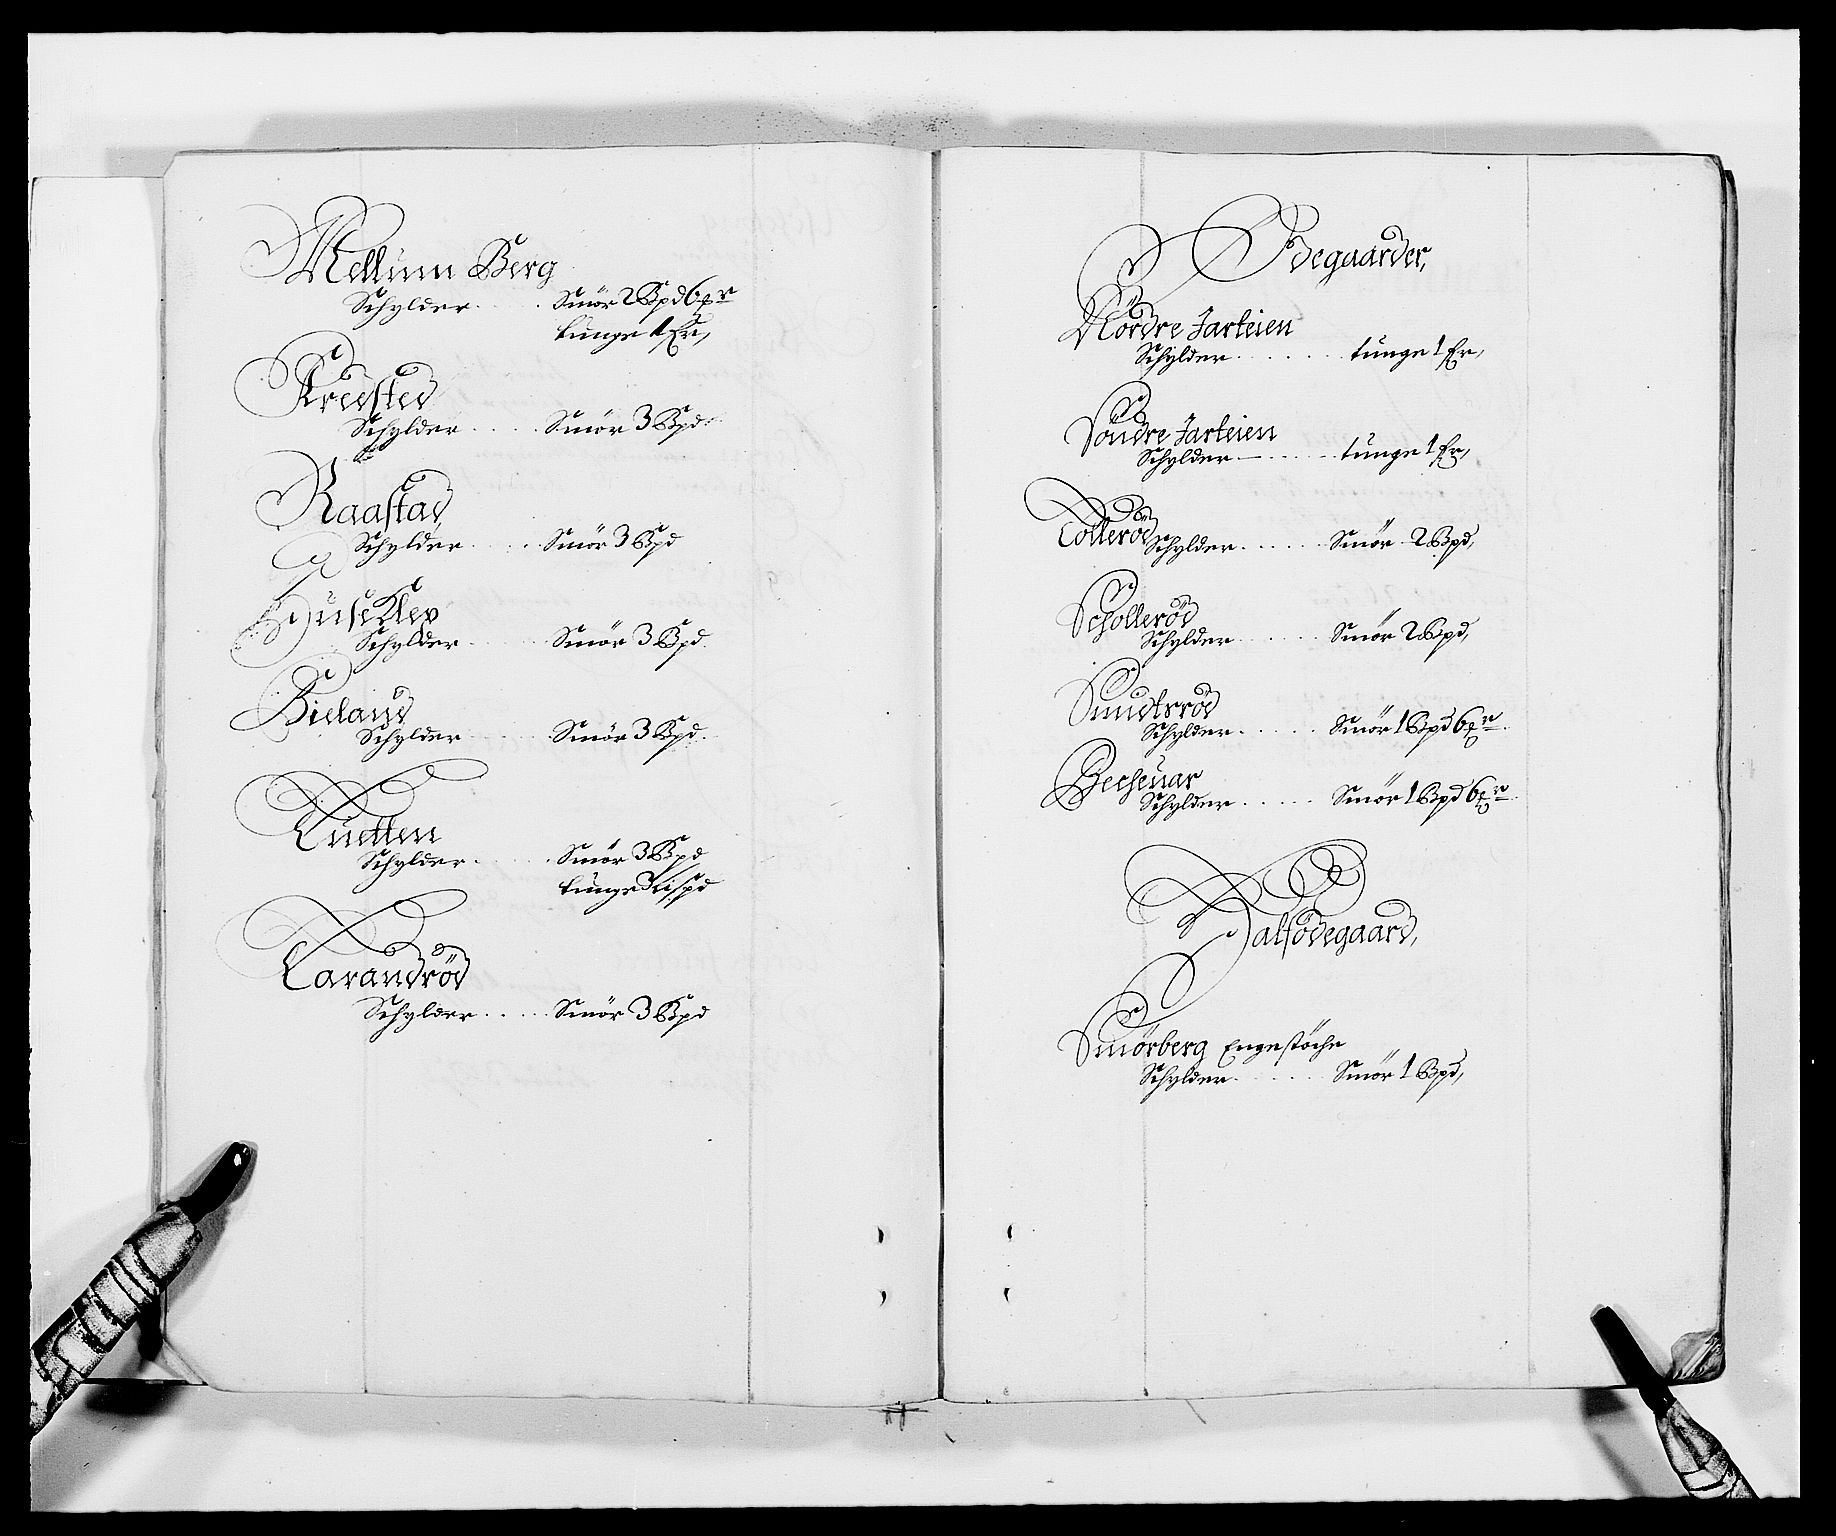 Mellum Berg
Schylder . . . . . Smör 2 Bpd 6 ⅌r
tunge 1 Er,
Kredsted
Schylder . . . . . Smör 3 Bpd
Raastad
Schylder . . . . . Smör 3 Bpd
Huseklep
Schylder . . . . . Smör 3 Bpd
Bieland
Schylder . . . . . Smör 3 Bpd
Luetten
Schylder . . . . . Smör 3 Bpd
tunge 3 Lispd
Larandröd
Schylder . . . . . Smör 3 Bpd
Ödegaarder,
Nordre Jarteien
Schylder . . . . . tunge 1 Er,
Söndre Jarteien
Schylder . . . . . tunge 1 Er,
Tolleröd Schylder . . . . . Smör 2 Bpd,
Scholleröd
Schylder . . . . . Smör 2 Bpd,
Smidtsröd
Schylder . . . . . Smör 1 Bpd 6 ⅌r
Becheuar
Schylder . . . . . Smör 1 Bpd 6 ⅌r
Halfödegaard,
Smörberg Engestöche
Schylder . . . . . Smör 1 Bpd,